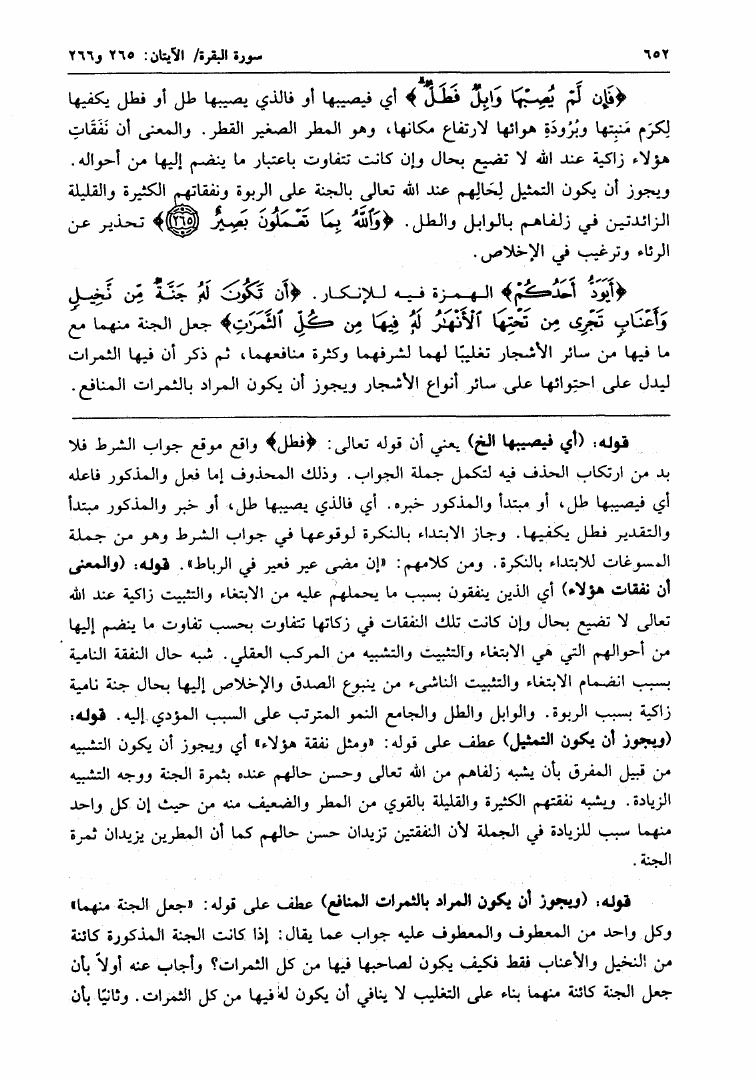 ٦٥٢
سورة البقرة/ الآيتان: ٢٦٥ و٢٦٦
﴿فَإِن لَّمْ يُصِبْهَا وَابِلٌ فَطَلٌّ﴾ أي فيصيبها أو فالذي يصيبها طل أو فطل يكفيها
لِكرَم مَنبِتها وبُرُودَةِ هوائها لارتفاع مكانها، وهو المطر الصغير القطر. والمعنى أن نَفَقَاتِ
هؤلاء زاكية عند الله لا تضيع بحال وإن كانت تتفاوت باعتبار ما ينضم إليها من أحواله.
ويجوز أن يكون التمثيل لِحَالِهم عند الله تعالى بالجنة على الربوة ونفقاتهم الكثيرة والقليلة
الزائدتين في زلفاهم بالوابل والطل. ﴿وَاللَّهُ بِمَا تَعْمَلُونَ بَصِيرٌ ﴿٢٦٥﴾﴾ تحذير عن
الرئاء وترغيب في الإخلاص.
﴿أَيَوَدُّ أَحَدُكُمْ﴾ الهمزة فيه للإنكار. ﴿أَن تَكُونَ لَهُ جَنَّةٌ مِّن نَّخِيلٍ
وَأَعْنَابٍ تَجْرِى مِن تَحْتِهَا الْأَنْهَٰرُ لَهُ فِيهَا مِن كُلِّ الثَّمَرَٰتِ﴾ جعل الجنة منهما مع
ما فيها من سائر الأشجار تغليبًا لهما لشرفهما وكثرة منافعهما، ثم ذكر أن فيها الثمرات
ليدل على احتوائها على سائر أنواع الأشجار ويجوز أن يكون المراد بالثمرات المنافع.
قوله: (أي فيصيبها الخ) يعني أن قوله تعالى: ﴿فطل﴾ واقع موقع جواب الشرط فلا
بد من ارتكاب الحذف فيه لتكمل جملة الجواب. وذلك المحذوف إما فعل والمذكور فاعله
أي فيصيبها طل، أو مبتدأ والمذكور خبره. أي فالذي يصيبها طل، أو خبر والمذكور مبتدأ
والتقدير فطل يكفيها. وجاز الابتداء بالنكرة لوقوعها في جواب الشرط وهو من جملة
المسوغات للابتداء بالنكرة. ومن كلامهم: «إن مضى عير فعير في الرباط». قوله: (والمعنى
أن نفقات هؤلاء) أي الذين ينفقون بسبب ما يحملهم عليه من الابتغاء والتثبيت زاكية عند الله
تعالى لا تضيع بحال وإن كانت تلك النفقات في زكاتها تتفاوت بحسب تفاوت ما ينضم إليها
من أحوالهم التي هي الابتغاء والتثبيت والتشبيه من المركب العقلي. شبه حال النفقة النامية
بسبب انضمام الابتغاء والتثبيت الناشىء من ينبوع الصدق والإخلاص إليها بحال جنة نامية
زاكية بسبب الربوة. والوابل والطل والجامع النمو المترتب على السبب المؤدي إليه. قوله:
(ويجوز أن يكون التمثيل) عطف على قوله: «ومثل نفقة هؤلاء» أي ويجوز أن يكون التشبيه
من قبيل المفرق بأن يشبه زلفاهم من الله تعالى وحسن حالهم عنده بثمرة الجنة ووجه التشبيه
الزيادة. ويشبه نفقتهم الكثيرة والقليلة بالقوي من المطر والضعيف منه من حيث إن كل واحد
منهما سبب للزيادة في الجملة لأن النفقتين تزيدان حسن حالهم كما أن المطرين يزيدان ثمرة
الجنة.
قوله: (ويجوز أن يكون المراد بالثمرات المنافع) عطف على قوله: «جعل الجنة منهما»
وكل واحد من المعطوف والمعطوف عليه جواب عما يقال: إذا كانت الجنة المذكورة كائنة
من النخيل والأعناب فقط فكيف يكون لصاحبها فيها من كل الثمرات؟ وأجاب عنه أولاً بأن
جعل الجنة كائنة منهما بناء على التغليب لا ينافي أن يكون له فيها من كل الثمرات. وثانيًا بأن